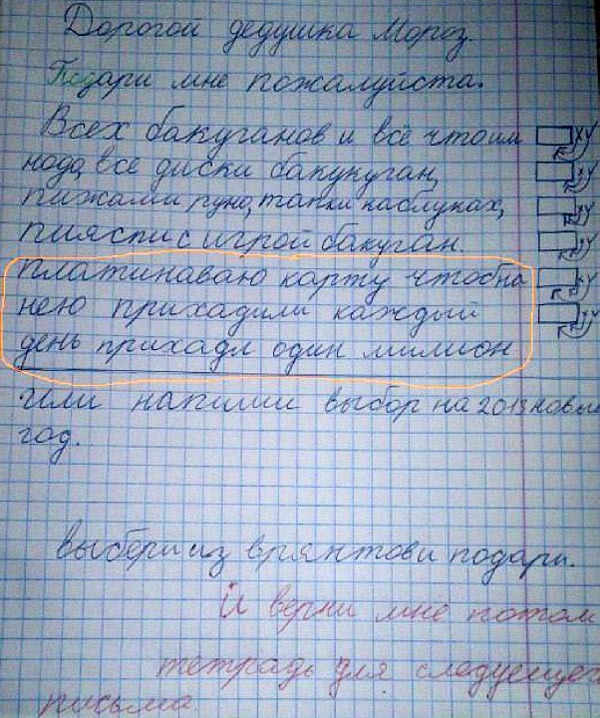 Дорогой дедушка Мороз.
Подари мне пожалуйста.
Всех бакуганов и всё что им
нодо, все диски бакукуган,
пижами руно, тапки каблуках,
пияспи с игрой бакуган.
платинаваю карту чтобна
нею прихадили каждый
день прихадл один милион
или напиши выбор на 2013 новый
год.
выбери из врянтов и подари.
И верни мне потом
тетрадь для следуещего
письма.